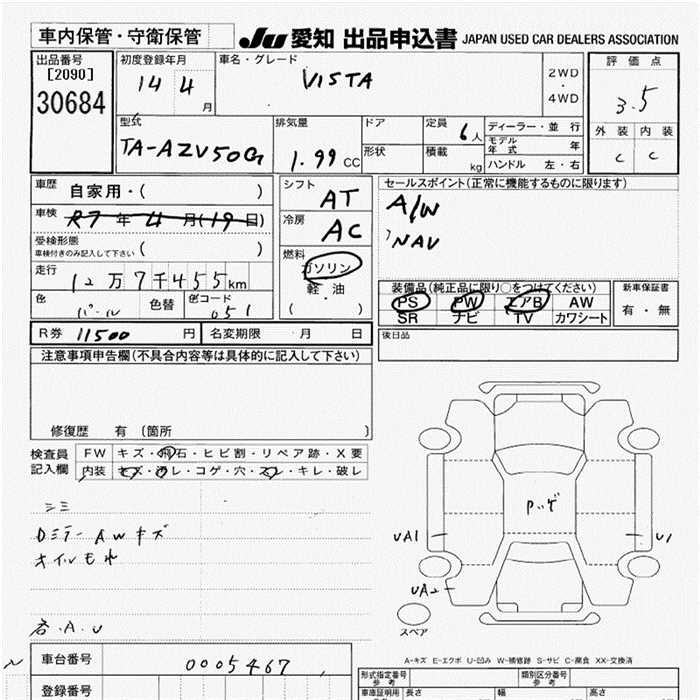 車内保管・守衛保管
JU 愛知 出品申込書 JAPAN USED CAR DEALERS ASSOCIATION
出品番号
[2090]
30684
初度登録年月
14 4 月
車名・グレード
VISTA
2WD
・
4WD
評価点
3.5
外装 内装
C C
型式
TA-AZV50G
排気量
1.99 CC
ドア
形状
定員 6人
積載 kg
ディーラー・並行
モデル年式 年
ハンドル 左・右
車歴 自家用・( )
車検 R7年4月(19日)
受検形態
車検付きのみ記入して下さい ( )
走行 12万7千455km
色 パール 色替 色コード 051
シフト AT
冷房 AC
燃料 ガソリン
軽・油
( )
セールスポイント(正常に機能するものに限ります)
A/W
NAV
装備品(純正品に限り○をつけてください)
PS PW エアB AW
SR ナビ TV カワシート
新車保証書
有・無
R券 11500円 名変期限 月 日
後日品
注意事項申告欄(不具合内容等は具体的に記入して下さい)
修復歴 有 〔箇所 〕
検査員記入欄
FW キズ・飛石・ヒビ割・リペア跡・X要
内装 キズ・汚レ・コゲ・穴・スレ・キレ・破レ
シミ
Dミラー AWキズ
オイルもれ
各.A.U
Pハゲ
UA1
U1
UA2
スペア
A-キズ E-エクボ U-凹み W-補修跡 S-サビ C-腐食 XX-交換済
車台番号 0005467
登録番号
型式指定番号
参考
類別区分番号
参考
車庫証明用
参考
長さ 幅 高さ